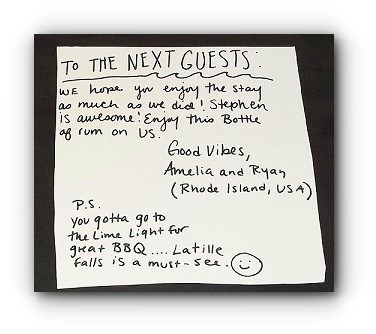 TO THE NEXT GUESTS:
WE hope you enjoy the stay
as much as we did! Stephen
is awesome! Enjoy this Bottle
of rum on US.
Good Vibes,
Amelia and Ryan
(Rhode Island, USA)
P.S.
you gotta go to
the Lime Light for
great BBQ .... Latille
falls is a must-see.